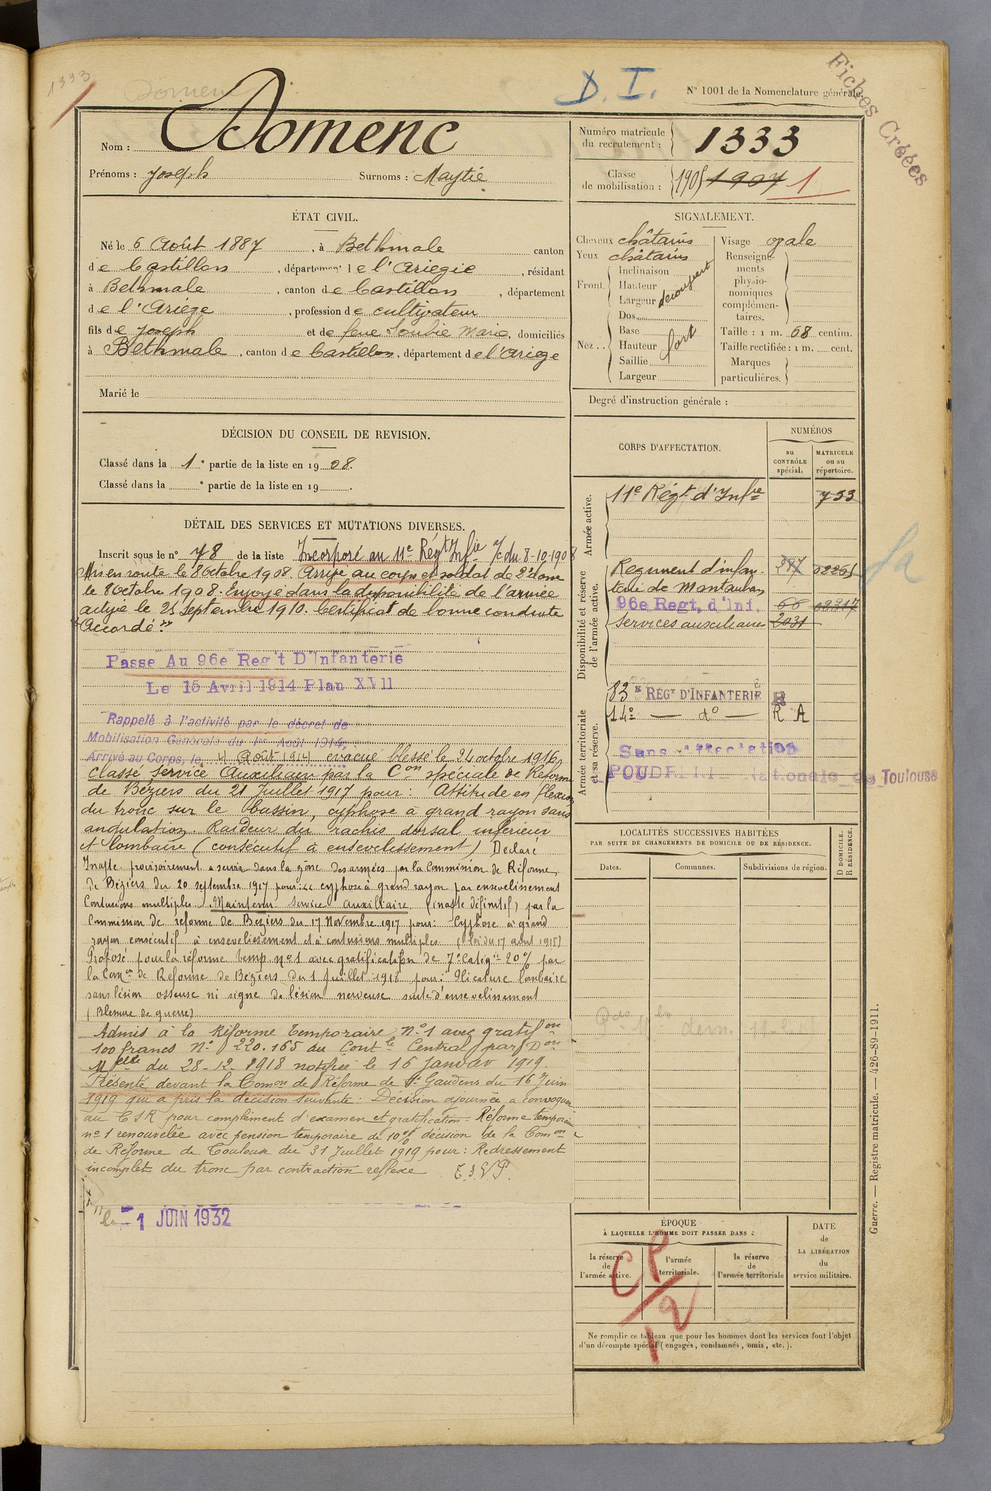 1333
D. I.
N° 1001 de la Nomenclature générale.
Fiches Créées
Nom : Domenc
Prénoms : Joseph Surnoms : Maytie
Numéro matricule du recrutement : 1333
Classe de mobilisation : 1905 1907 1
ÉTAT CIVIL.
Né le 6 Août 1887, à Bethmale canton
de Castillon, département de l'Ariegie, résidant
à Bethmale, canton de Castillon, département
de l'Ariège, profession de cultivateur
fils de Joseph et de feue Soubie Marie, domiciliés
à Bethmale, canton de Castillon, département de l'Ariège
Marié le
SIGNALEMENT.
Cheveux châtains
Yeux châtains
Front. Inclinaison
Hauteur
Largeur découvert
Nez.. Dos
Base
Hauteur fort
Saillie
Largeur
Visage ovale
Renseignements physionomiques complémentaires.
Taille : 1 m. 68 centim.
Taille rectifiée : 1 m. cent.
Marques particulières.
Degré d'instruction générale :
DÉCISION DU CONSEIL DE REVISION.
Classé dans la 1e partie de la liste en 1908.
Classé dans la e partie de la liste en 19 .
DÉTAIL DES SERVICES ET MUTATIONS DIVERSES.
Inscrit sous le n° 78 de la liste Incorporé au 11e Régt Infie %c du 8-10-1908
Mis en route le 8 Octobre 1908. Arrivé au corps et soldat de 2e classe
le 8 Octobre 1908. Envoyé dans la disponibilité de l'armée
active le 25 Septembre 1910. Certificat de bonne conduite
"Accordé."
Passé Au 96e Reg't D'Infanterie
Le 15 Avril 1914 Plan XVII
Rappelé à l'activité par le décret de
Mobilisation Générale du 1er Août 1914,
Arrivé au Corps, le 4 Août 1914 évacué blessé le 24 octobre 1916,
classé Service Auxiliaire par la Con spéciale de Réforme
de Béziers du 21 Juillet 1917 pour : Attitude en flexion
du tronc sur le bassin, cyphose à grand rayon sans
angulation. Raideur du rachis dorsal inférieur
et lombaire (consécutif à ensevelissement) Déclaré
Inapte provisoirement a servir dans la zone des armées par la Commission de Réforme
de Béziers du 20 septembre 1917 pour cyphose à grand rayon par ensevelissement
Contusions multiples. Maintenu Service Auxiliaire (inapte définitif) par la
Commission de réforme de Béziers du 17 Novembre 1917 pour : Cyphose à grand
rayon consécutif à ensevelissement et à contusions multiples (loi du 17 août 1915)
Proposé pour la réforme temp. n°1 avec gratification de 7e Catégie 20% par
la Comon de Réforme de Béziers du 1 Juillet 1918 pour : Plicature lombaire
sans lésion osseuse ni signe de lésion nerveuse suite d'ensevelissement
(Blessure de guerre)
Admis à la Réforme temporaire N°1 avec gratifon
100 francs N° 220.165 du Contle Central par Don
Melle du 28-12-1918 notifiée le 16 Janvier 1919.
Présenté devant la Comon de Réforme de St Gaudens du 16 Juin
1919 qui a pris la décision suivante : Décision ajournée, a convoquer
au CSR pour complément d'examen et gratification. Réforme temporaire
n°1 renouvelée avec pension temporaire de 10% décision de la Comon
de Réforme de Toulouse du 31 Juillet 1919 pour : Redressement
incomplet du tronc par contraction reflexe T.S.V.P.
le -1 JUIN 1932
CORPS D'AFFECTATION.
NUMÉROS
au CONTRÔLE spécial.
MATRICULE ou au répertoire.
Armée active.
11e Régt d'Infie 733
Disponibilité et réserve de l'armée active.
Régiment d'infan- 387
terie de Montauban
96e Regt. d'Inf. 66
Services auxiliaires 2031
Armée territoriale et sa réserve.
83e RÉGt D'INFANTERIE R
14e — do — R A
Sans affectation
POUDRERIE Nationale de Toulouse
LOCALITÉS SUCCESSIVES HABITÉES
PAR SUITE DE CHANGEMENTS DE DOMICILE OU DE RÉSIDENCE.
Dates. Communes. Subdivisions de région. D DOMICILE. R RÉSIDENCE.
ÉPOQUE
À LAQUELLE L'HOMME DOIT PASSER DANS :
la réserve de l'armée active.
l'armée territoriale.
la réserve de l'armée territoriale
DATE de LA LIBÉRATION du service militaire.
CP/12
Ne remplir ce tableau que pour les hommes dont les services font l'objet
d'un décompte spécial (engagés, condamnés, omis, etc.).
Guerre. — Registre matricule. — 426-89-1911.